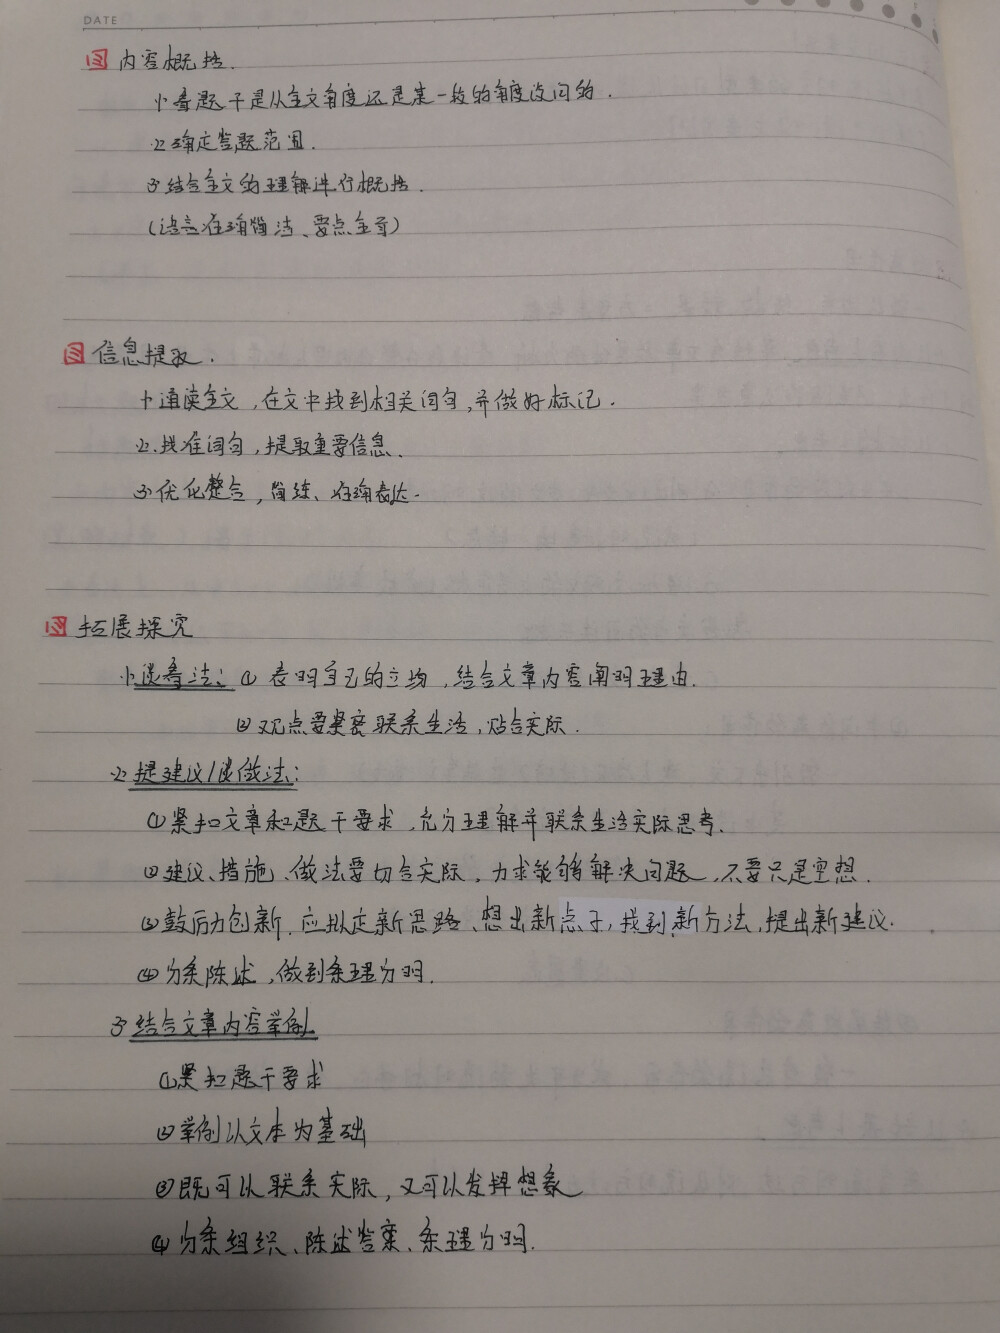 DATE
内容概括.
1、看题干是从全文角度还是某一段的角度设问的.
2、确定答题范围.
3、结合全文的理解进行概括.
(语言准确简洁、要点全面)
信息提取.
1、通读全文,在文中找到相关词句,并做好标记.
2、找准词句,提取重要信息、
3、优化整合,简练、准确表达.
拓展探究
1、谈看法:① 表明自己的立场,结合文章内容阐明理由.
②观点要紧密联系生活,贴合实际.
2、提建议/谈做法:
①紧扣文章和题干要求,充分理解并联系生活实际思考.
②建议、措施、做法要切合实际,力求能够解决问题,不要只是空想.
③鼓励创新.应拟定新思路、想出新点子,找到新方法,提出新建议.
④分条陈述,做到条理分明.
3、结合文章内容举例
①紧扣题干要求
②举例以文本为基础
③既可以联系实际,又可以发挥想象
④分条组织、陈述答案、条理分明.